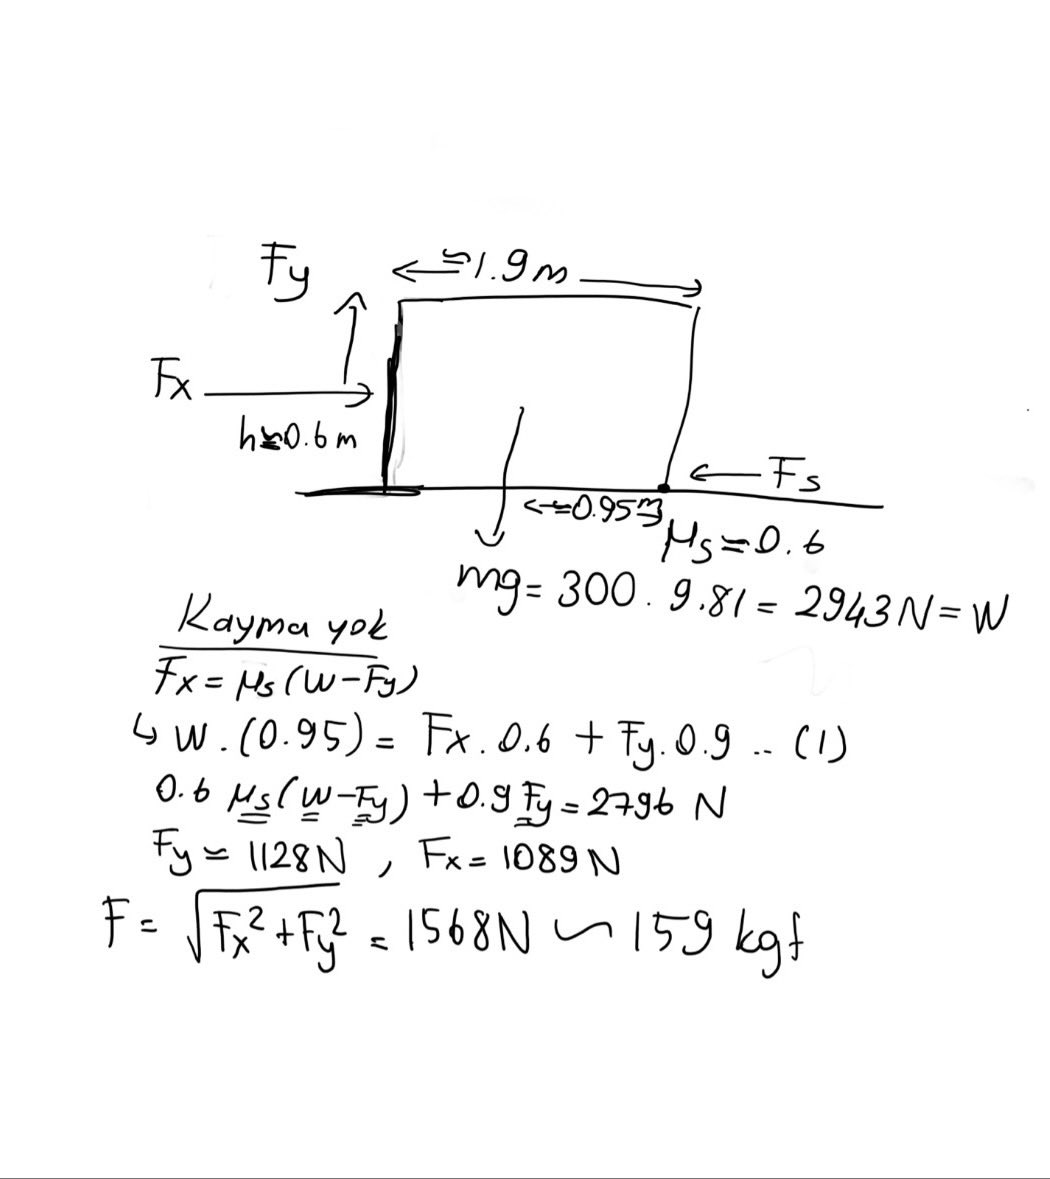 Fy
≃1.9m
Fx
h≃0.6m
Fs
≃0.95m
μs=0.6
mg= 300. 9.81 = 2943N=W
Kayma yok
Fx = μs(W-Fy)
↳ W.(0.95) = Fx.0.6 + Fy.0.9 .. (1)
0.6 μs(W-Fy) +0.9Fy=2796 N
Fy ≃ 1128N , Fx= 1089N
F= √Fx²+Fy² = 1568N ∽ 159 kgf